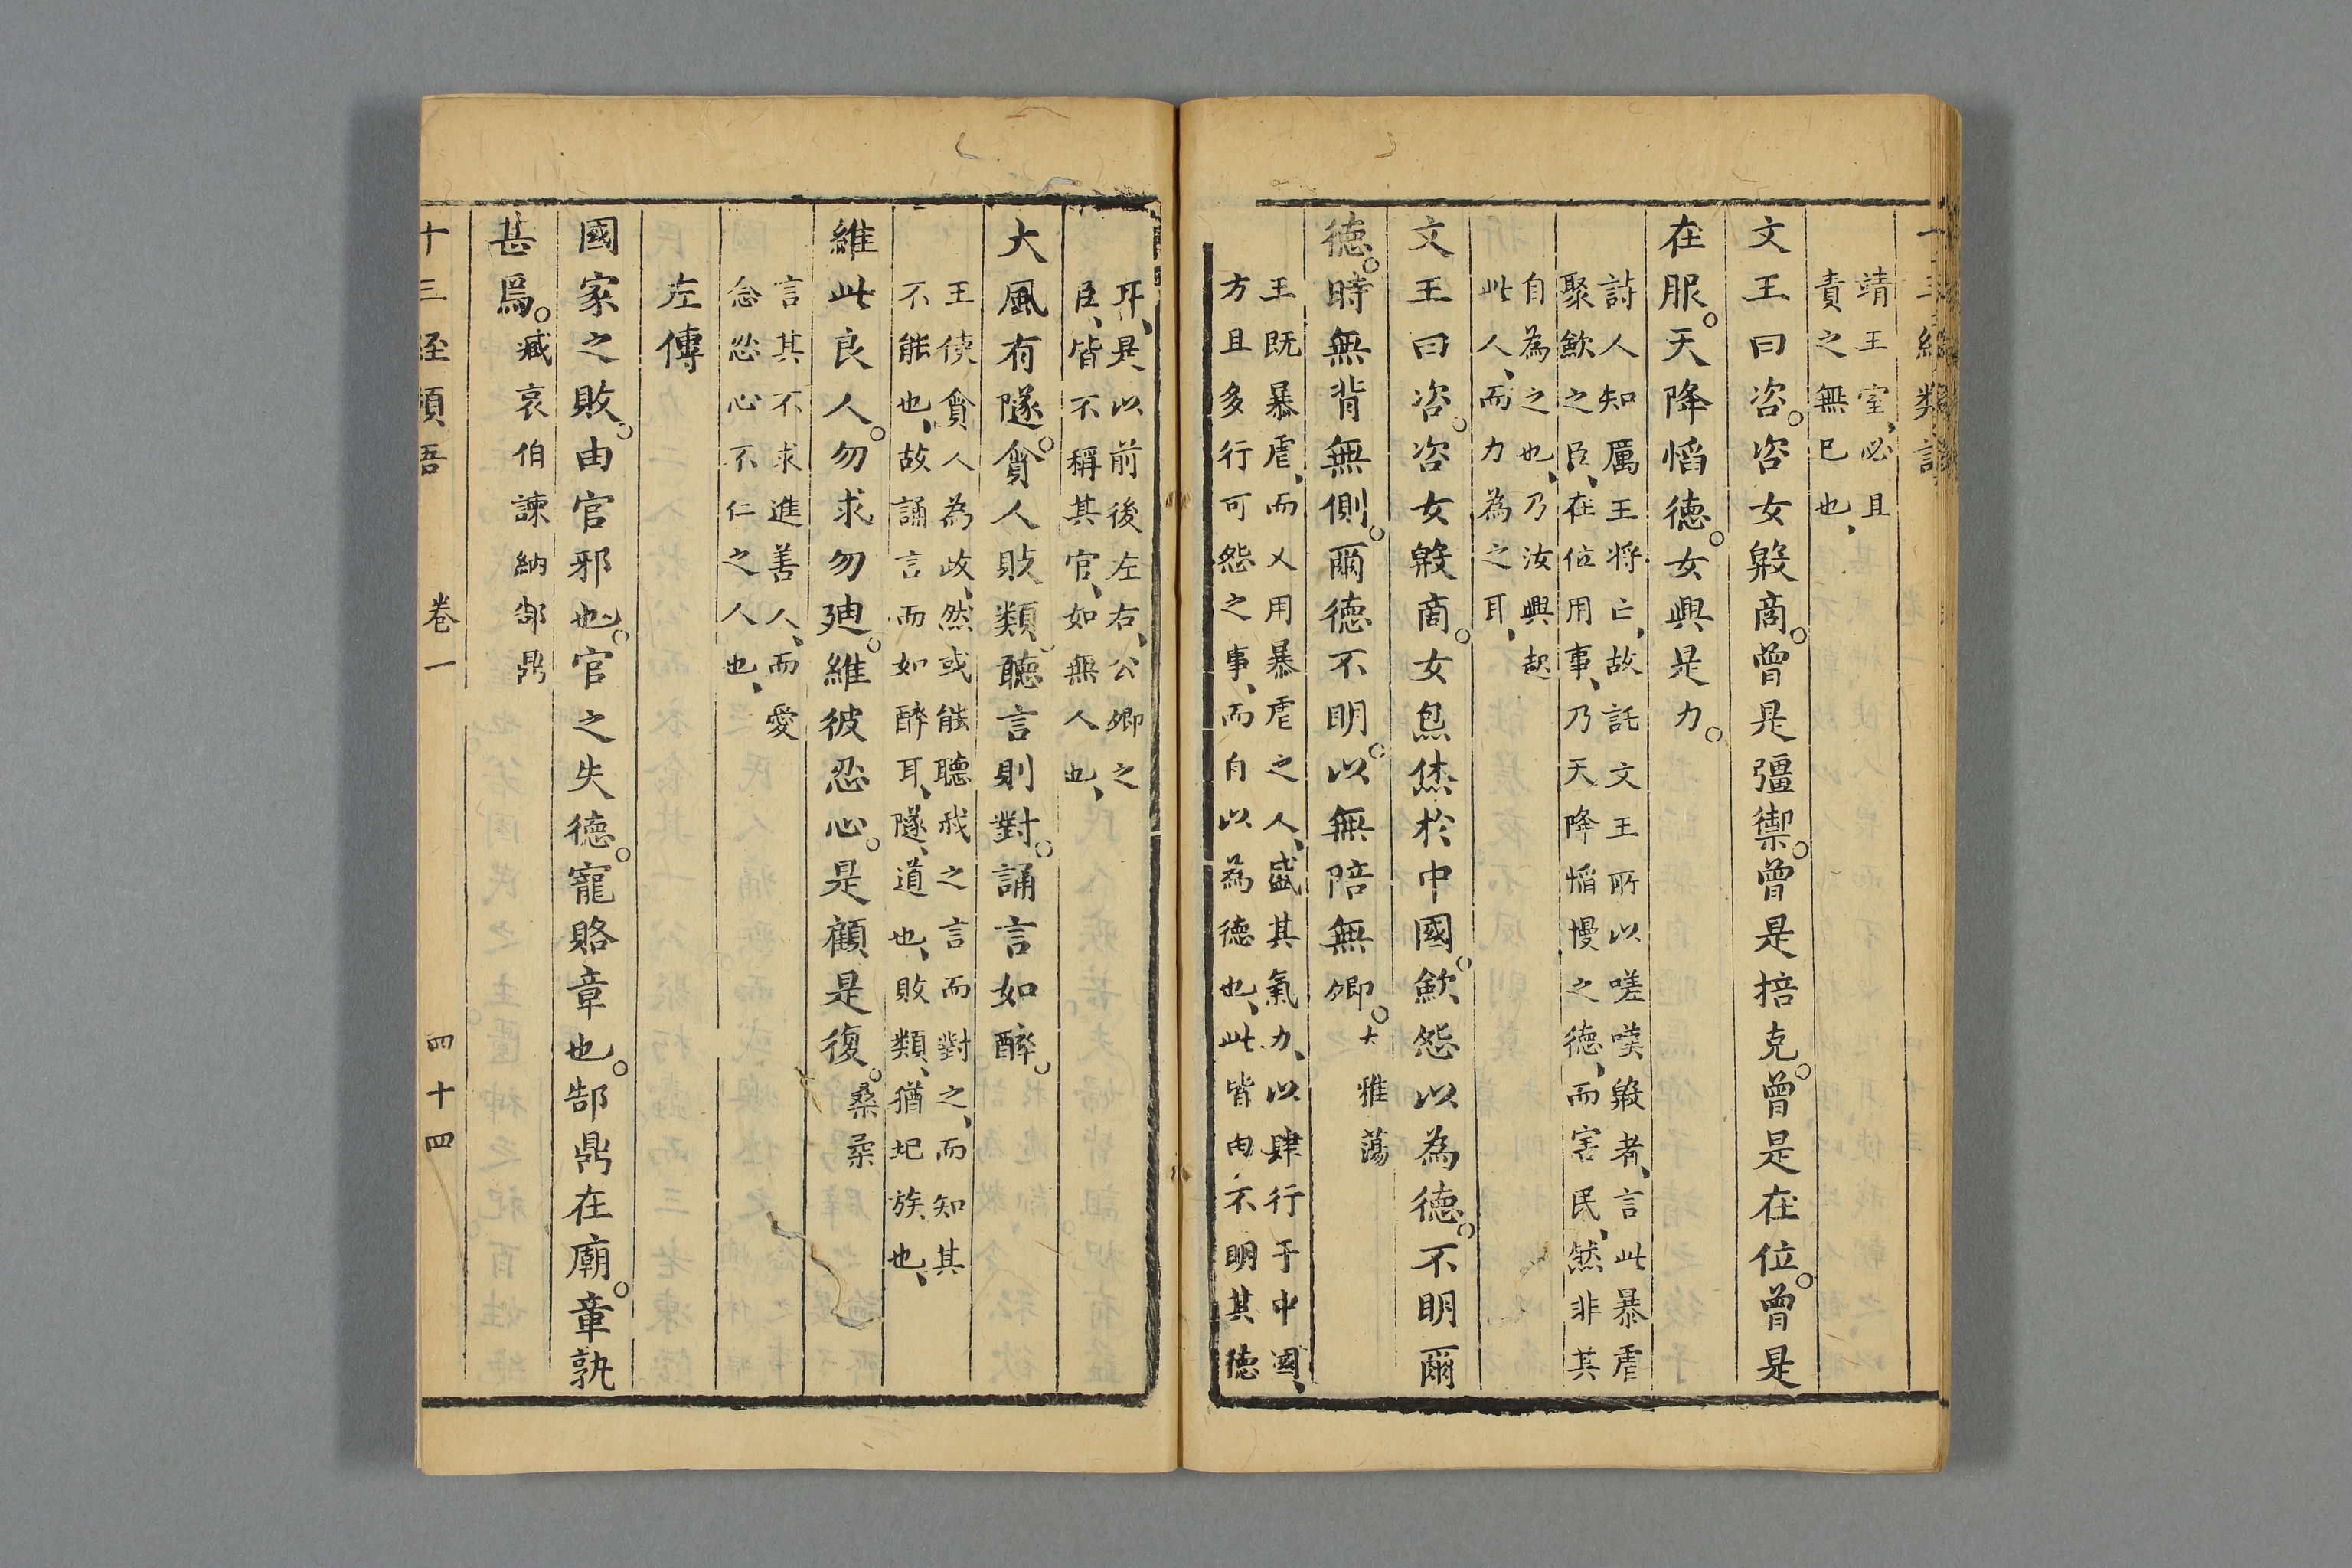 十三經類語
靖王室、必且
責之無已也、
文王曰咨。咨女殷商。曾是彊禦。曾是掊克。曾是在位。曾是
在服。天降慆德。女興是力。
詩人知厲王将亡、故託文王所以嗟嘆殷者、言此暴虐
聚歛之臣、在位用事、乃天降慆慢之德、而害民、然非其
自為之也、乃汝興起
此人、而力為之耳、
文王曰咨。咨女殷商。女炰烋於中國。歛怨以為德。不明爾
德。時無背無側。爾德不明。以無陪無卿。大雅蕩
王既暴虐、而乂用暴虐之人、盛其氣力、以肆行于中國、
方且多行可怨之事、而自以為德也、此皆由不明其德
耳、是以前後左右、公卿之
臣、皆不稱其官、如無人也、
大風有隧。貪人敗類、聽言則對。誦言如醉。
王使貪人為政、然或能聽我之言而對之、而知其
不能也、故誦言而如醉耳、隧、道也、敗類、猶圯族也、
維此良人。勿求勿迪。維彼忍心。是顧是復。桑柔
言其不求進善人、而愛
念忍心不仁之人也、
左傳
國家之敗。由官邪也。官之失德。寵賂章也。郜鼎在廟。章孰
甚焉。臧哀伯諫納郜鼎
十三經類語 卷一 四十四